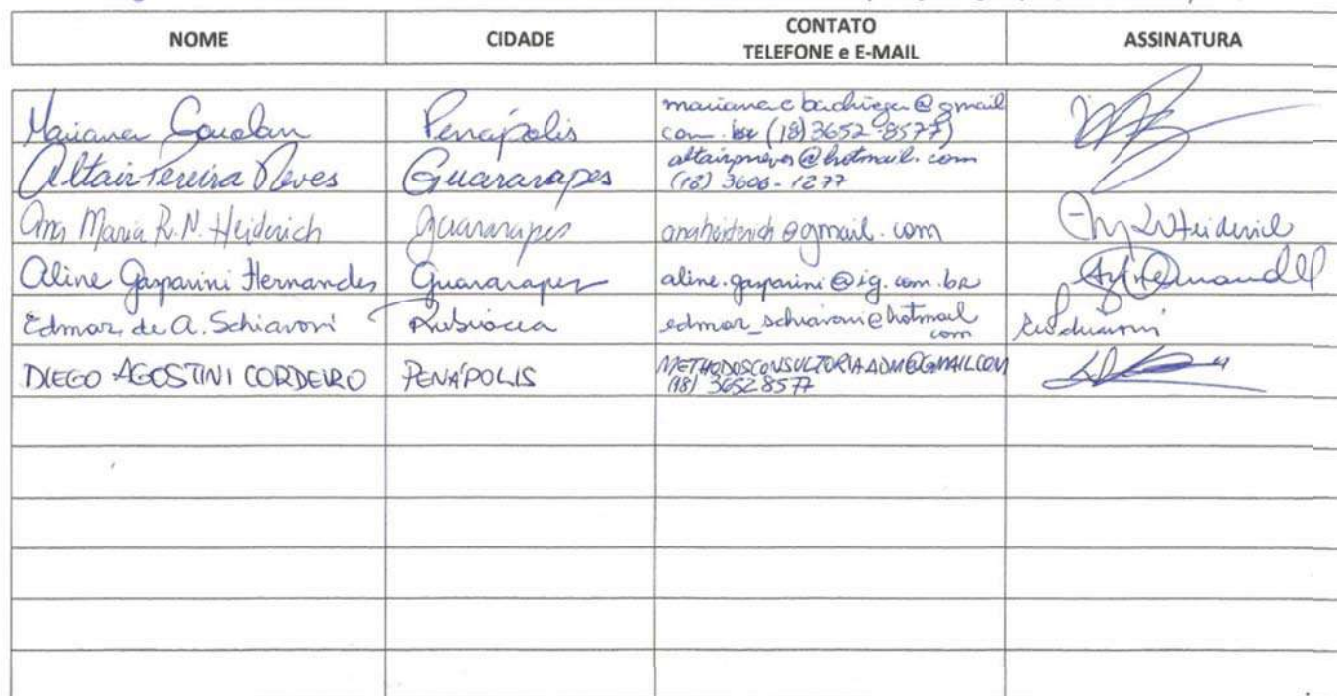 NOME CIDADE CONTATO TELEFONE e E-MAIL ASSINATURA
Mariana Penápolis mariana c @gmail
com.br (18) 3652-8577)
Altair Pereira Neves Guararapes altairpneves@hotmail.com
(18) 3606-1277
Ana Maria R.N. Heiderich Guararapes anaheiderich@gmail.com
Aline Gasparini Hernandes Guararapes aline.gasparini@ig.com.br
Edmar de A. Schiavoni Rubiácea edmar_schiavoni@hotmail
com
DIEGO AGOSTINI CORDEIRO PENÁPOLIS METHODOSCONSULTORIAADM@GMAIL.COM
(18) 36528577